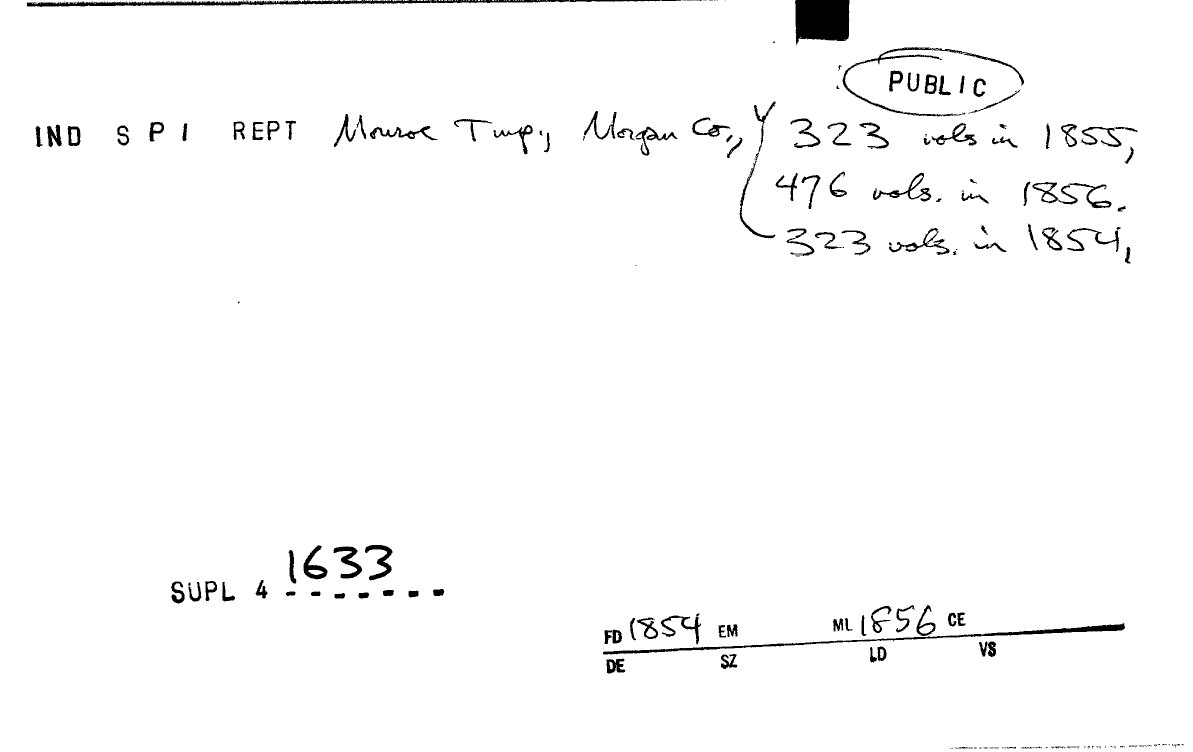 PUBLIC
IND S P I REPT Monroe Twp., Morgan Co., 323 vols in 1855,
476 vols. in 1856.
323 vols. in 1854,
SUPL 4 1633
FD 1854 EM ML 1856 CE
DE SZ LD VS